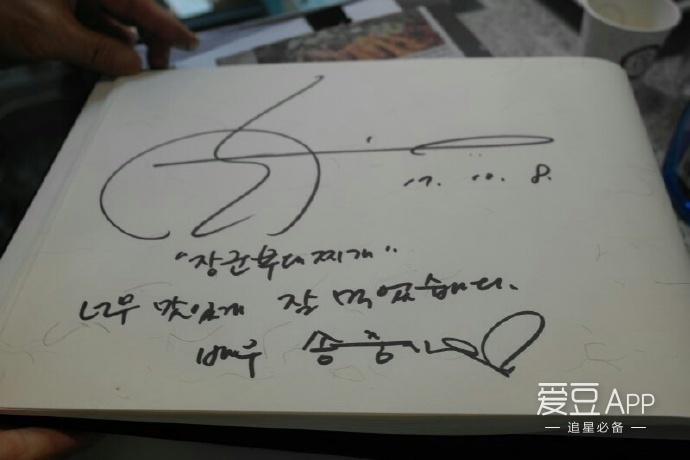 17. 10. 8.
"장군부대찌개"
너무 맛있게 잘 먹었습니다.
배우 송중기
爱豆APP
追星必备